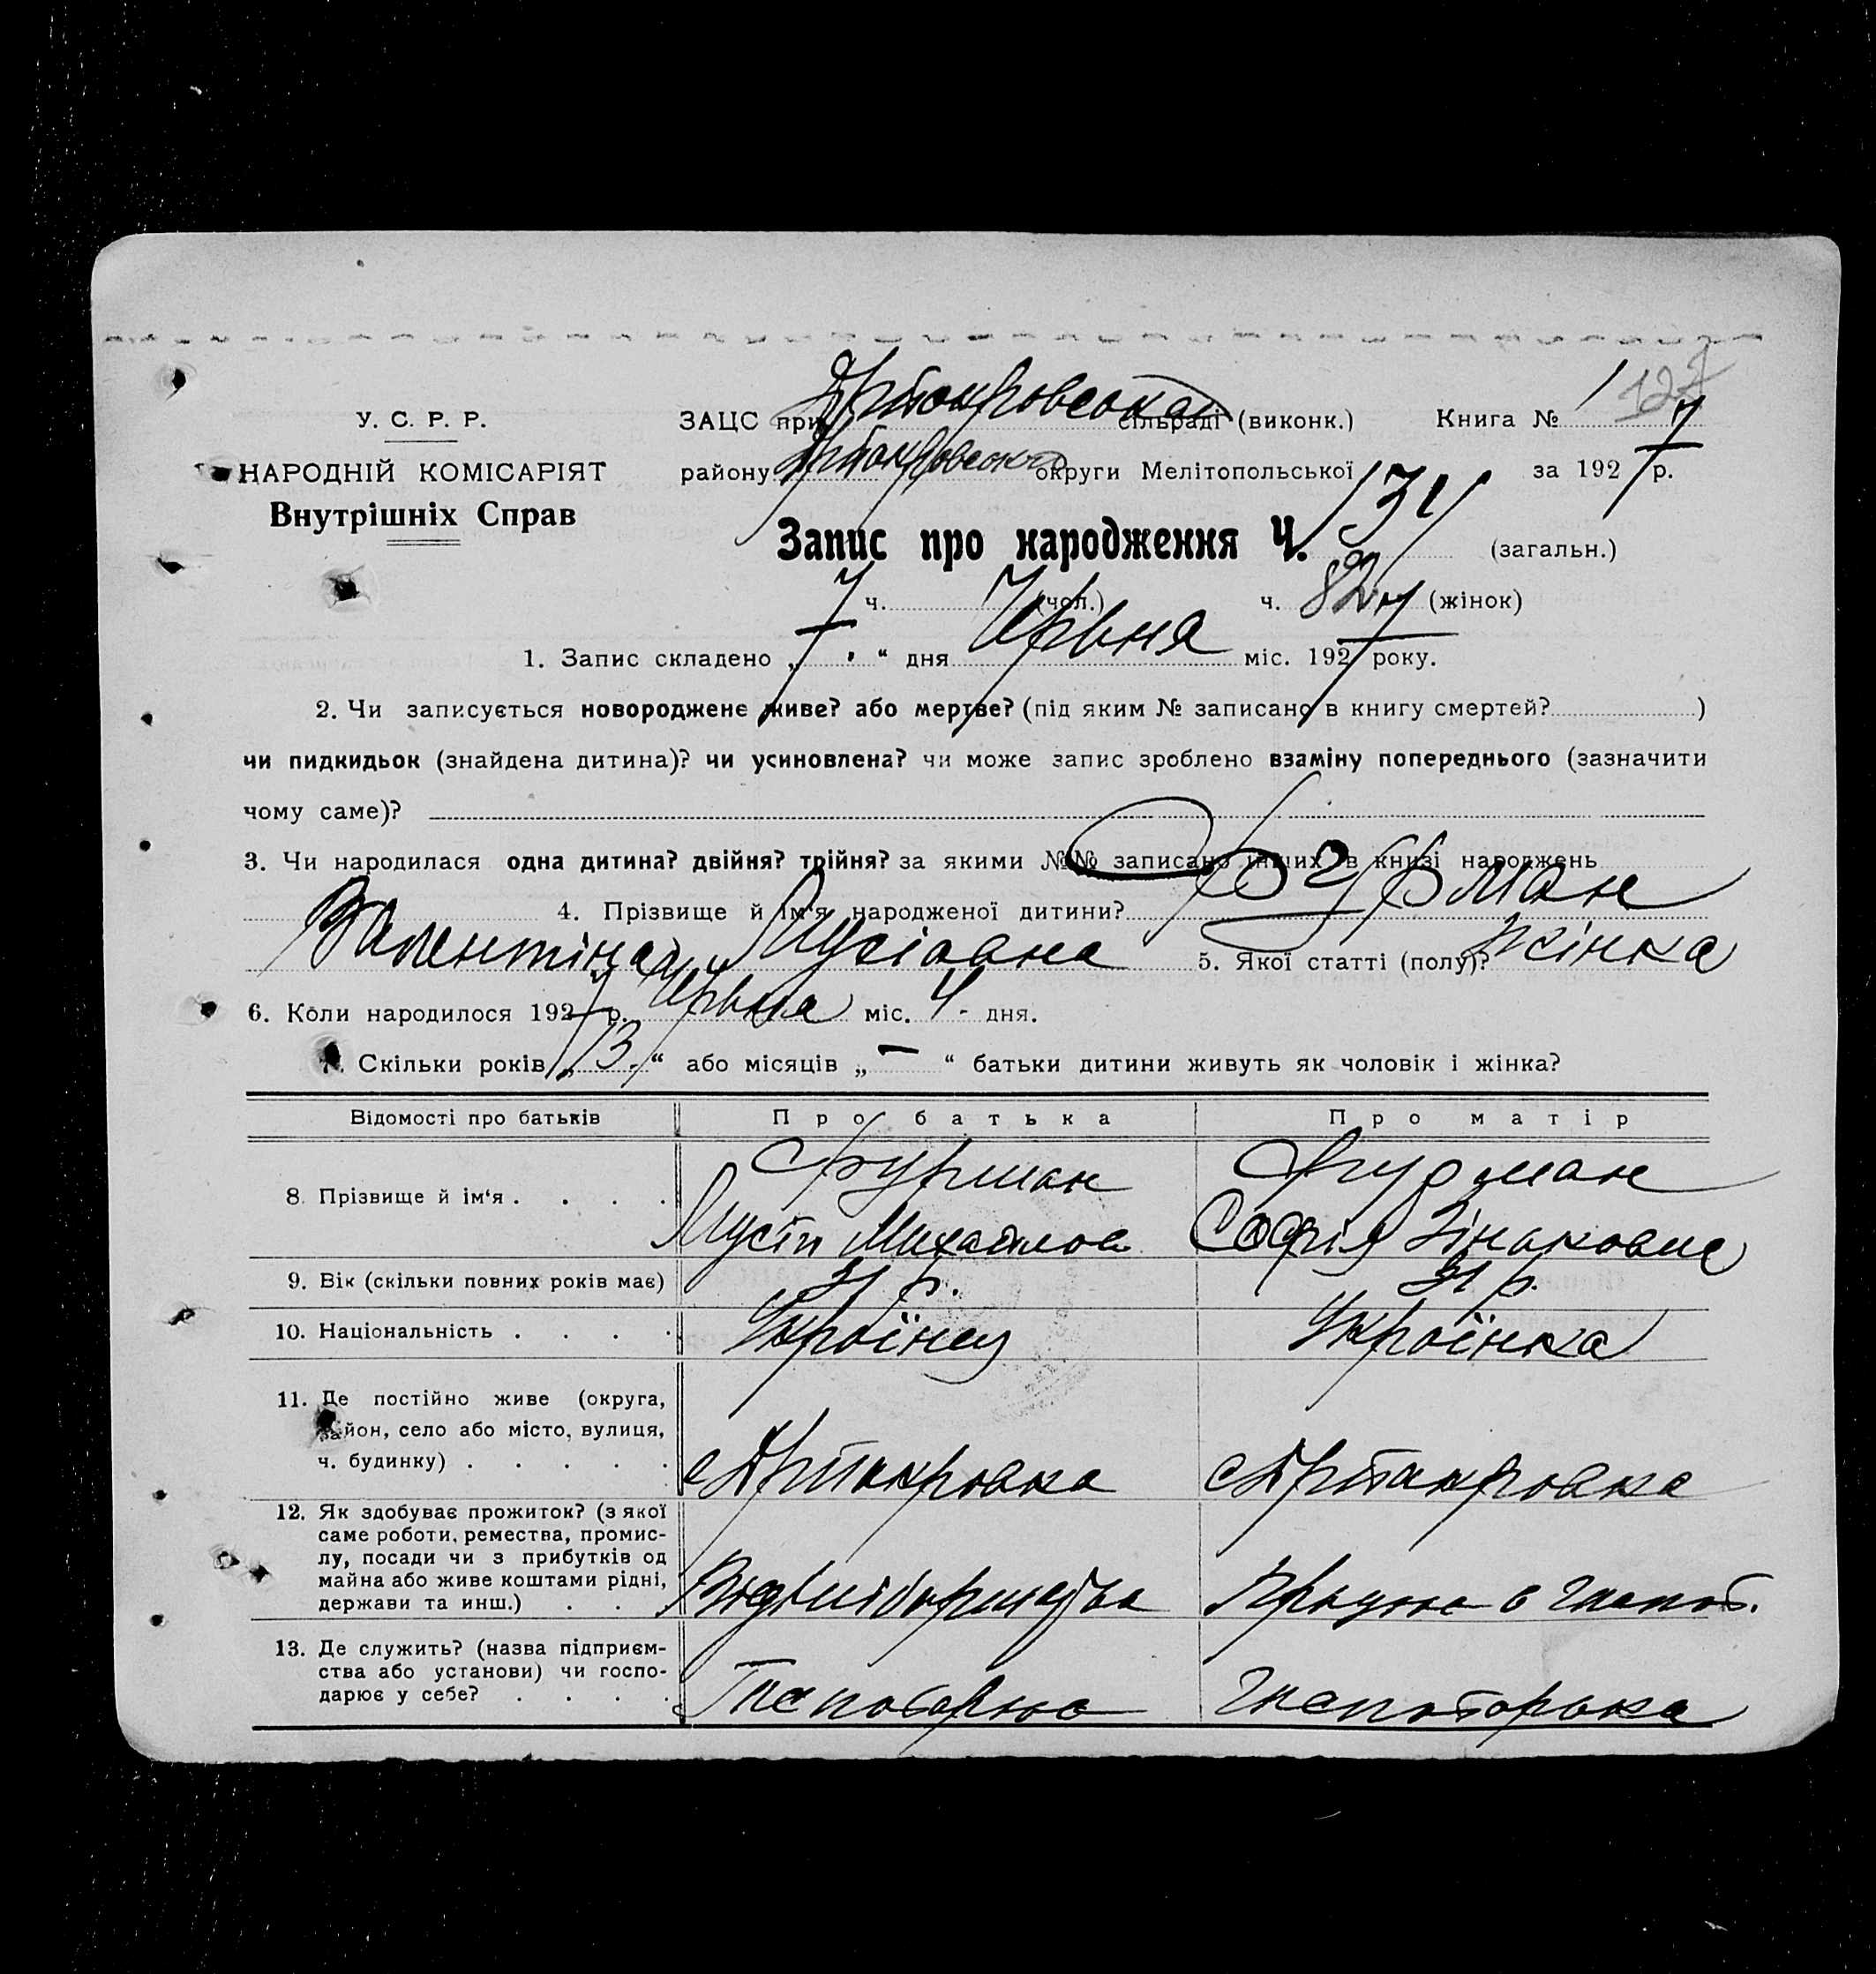 127
У. С. Р. Р.
НАРОДНІЙ КОМІСАРІЯТ
Внутрішніх Справ
ЗАЦС при сільраді (виконк.) Книга № 1
району округи Мелітопольської за 1927 р.
Запис про народження Ч. 134 (загальн.)
ч. (чол.) ч. 82 (жінок)
1. Запис складено „7“ дня Червня міс. 1927 року.
2. Чи записується новороджене живе? або мертве? (під яким № записано в книгу смертей? )
чи пидкидьок (знайдена дитина)? чи усиновлена? чи може запис зроблено взаміну попереднього (зазначити
чому саме)?
3. Чи народилася одна дитина? двійня? трійня? за якими №№ записано інших в книзі народжень
4. Прізвище й ім'я народженої дитини? Фурман
Валентіна 5. Якої статті (полу)? Жінка
6. Коли народилося 1927 р. Червня міс. 4 - дня.
7. Скільки років „13“ або місяців „—“ батьки дитини живуть як чоловік і жінка?
Відомості про батьків Про батька Про матір
8. Прізвище й ім'я . . . . Фурман Фурман
Софія
9. Вік (скільки повних років має) 31 р. 31 р.
10. Національність . . . . Українец Українка
11. Де постійно живе (округа,
район, село або місто, вулиця,
ч. будинку) . . . . .
12. Як здобуває прожиток? (з якої
саме роботи, ремества, промис-
лу, посади чи з прибутків од
майна або живе коштами рідні,
держави та инш.) . . Працює в господ.
13. Де служить? (назва підприєм-
ства або установи) чи госпо-
дарює у себе? . . . . Господарює